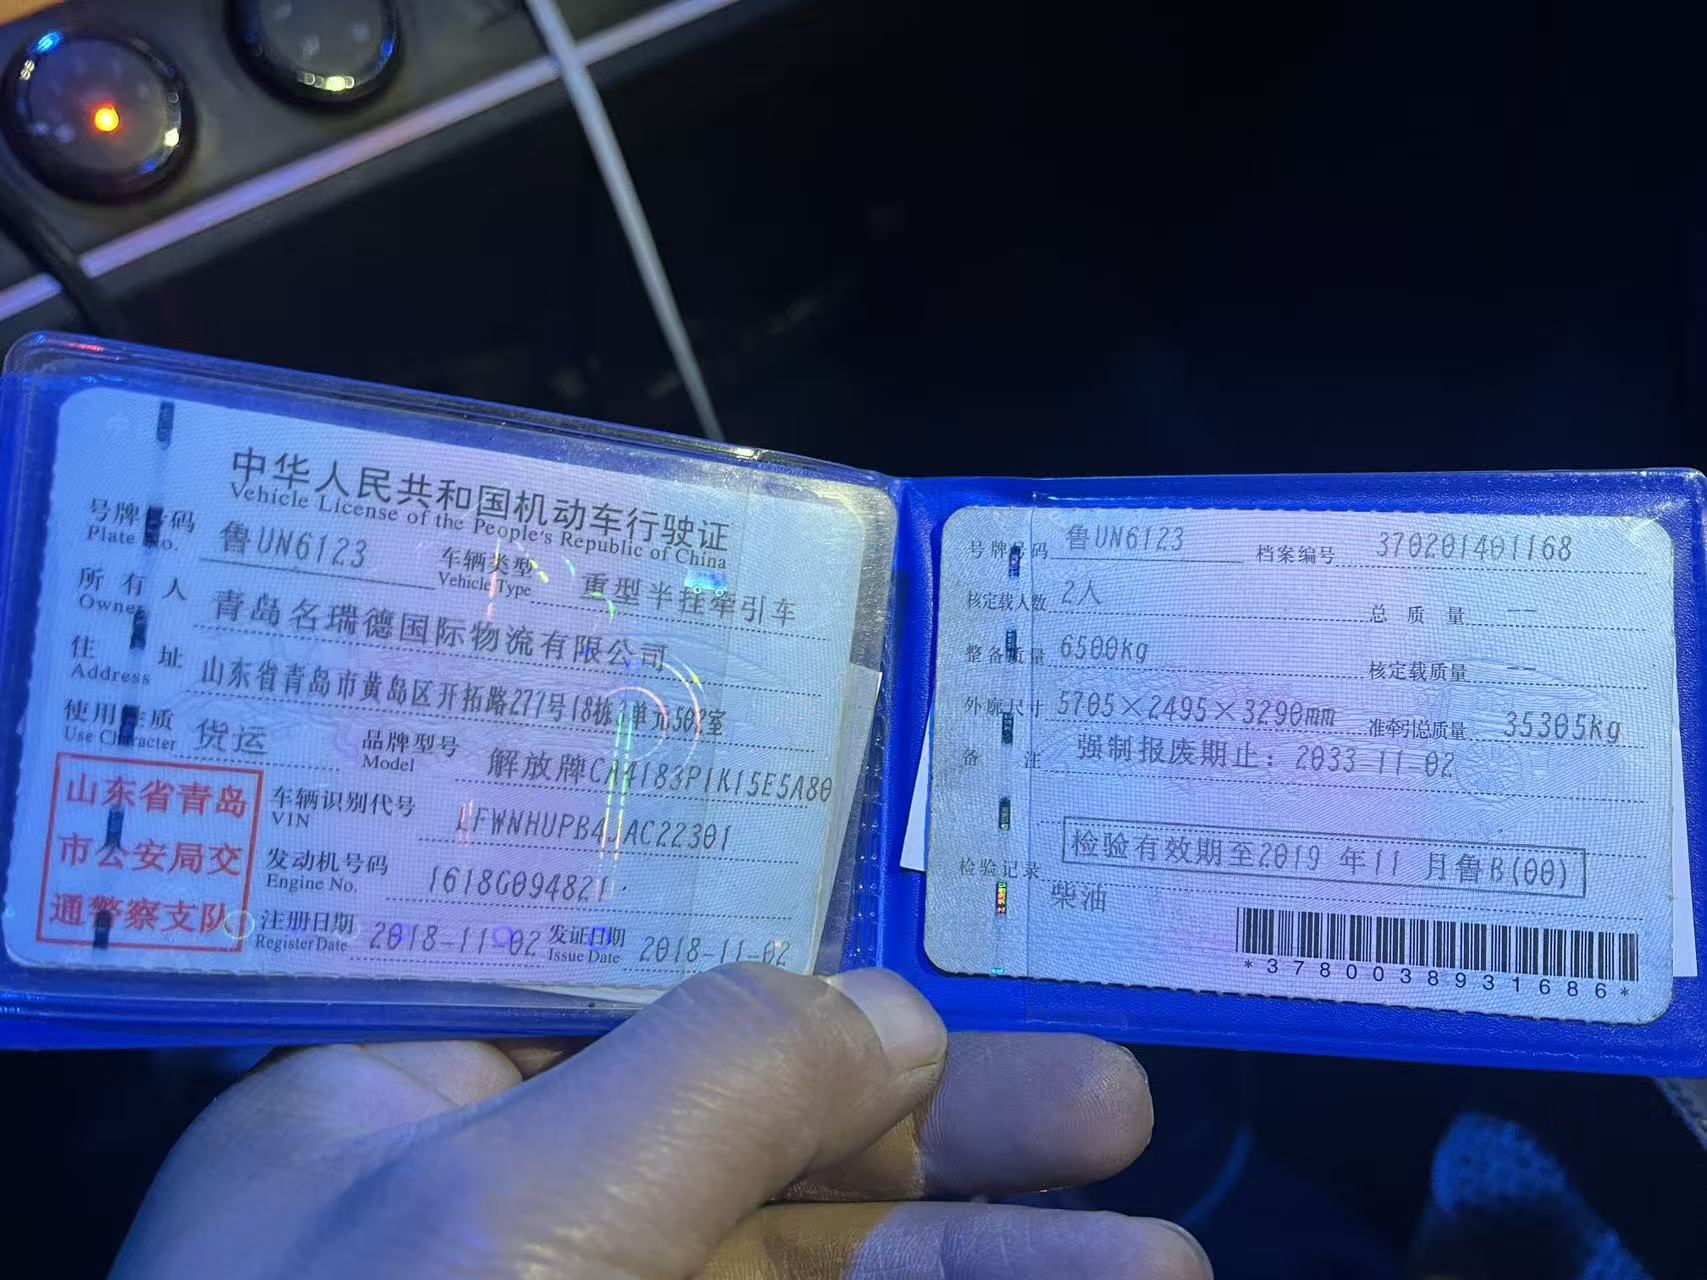 中华人民共和国机动车行驶证
Vehicle License of the People's Republic of China
号牌号码 鲁UN6123 车辆类型 重型半挂牵引车
Plate No. Vehicle Type
所有人 青岛名瑞德国际物流有限公司
Owner
住址 山东省青岛市黄岛区开拓路277号18栋2单元502室
Address
使用性质 货运 品牌型号 解放牌CA4183P1K15E5A80
Use Character Model
山东省青岛
市公安局交
通警察支队
车辆识别代号 LFWNHUPB4JAC22301
VIN
发动机号码 1618G094821
Engine No.
注册日期 2018-11-02 发证日期 2018-11-02
Register Date Issue Date
号牌号码 鲁UN6123 档案编号 370201401168
核定载人数 2人 总质量 --
整备质量 6500kg 核定载质量 --
外廓尺寸 5705×2495×3290mm 准牵引总质量 35305kg
备注 强制报废期止：2033-11-02
检验记录 检验有效期至2019年11月鲁B(00)
柴油
*3780038931686*